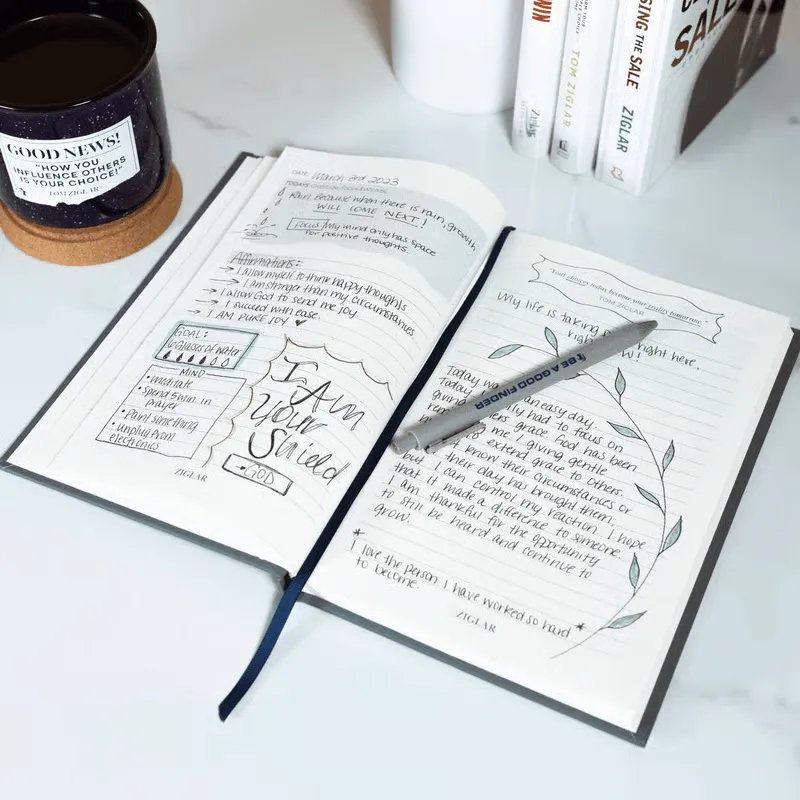 GOOD NEWS!
"HOW YOU
INFLUENCE OTHERS
IS YOUR CHOICE!"
TOM ZIGLAR
WIN
TOM ZIGLAR
SING THE SALE
ZIGLAR
SALE
DATE: March 3rd 2023
Rain. Because when there is rain, growth
WILL COME NEXT!
Focus My mind only has space
for positive thoughts.
Affirmations:
→ I allow myself to think happy thoughts
→ I am stronger than my circumstances
→ I allow God to send me joy
→ I succeed with ease.
→ I AM PURE JOY ♥
GOAL:
6 Glasses of water
MIND
• Meditate
• Spend 5 min. in
prayer
• Paint something
• Unplug from
electronics
I Am
Your
Shield
-GOD
ZIGLAR
"Your choices today become your reality tomorrow."
TOM ZIGLAR
My life is taking right here,
right W!
BE A GOOD FINDER
Today wa an easy day.
Today ly had to focus on
giving ers grace. God has been
rem me I giving gentle
to extend grace to others.
know their circumstances or
their day has brought them,
but I can control my reaction. I hope
that it made a difference to someone.
I am thankful for the opportunity
to still be heard and continue to
grow.
* I love the person I have worked so hard *
to become.
ZIGLAR